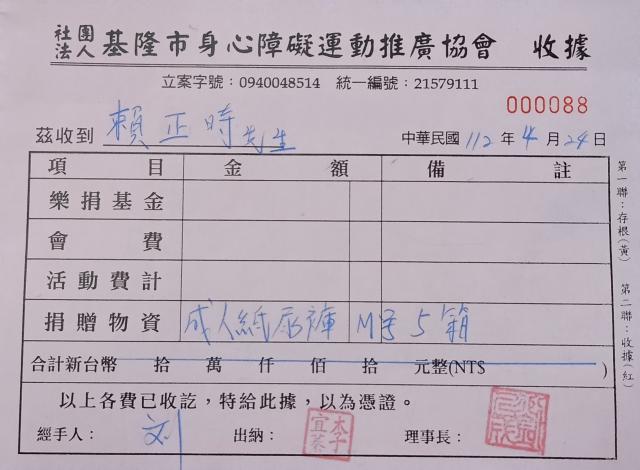 社團法人 基隆市身心障礙運動推廣協會 收據
立案字號：0940048514 統一編號：21579111
000088
茲收到 賴正時先生 中華民國 112 年 4 月 24 日
項目 金額 備註
樂捐基金
會費
活動費計
捐贈物資 成人紙尿褲 M号 5 箱
合計新台幣 拾 萬 仟 佰 拾 元整(NTS )
以上各費已收訖，特給此據，以為憑證。
經手人： 刘 出納： 李宜蓁 理事長：
第一聯：存根(黃) 第二聯：收據(紅)